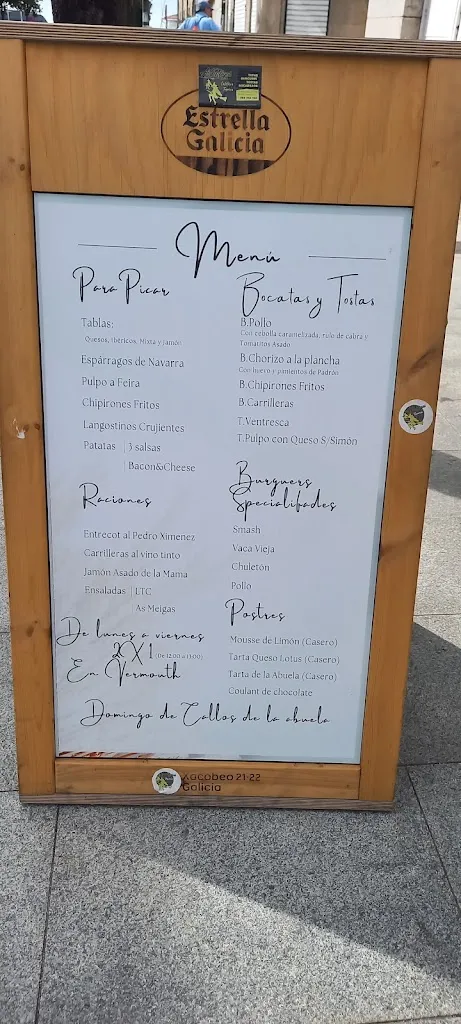 Estrella
Galicia
Menú
Para Picar
Tablas:
Quesos, Ibéricos, Mixta y Jamón
Espárragos de Navarra
Pulpo a Feira
Chipirones Fritos
Langostinos Crujientes
Patatas | 3 salsas
| Bacon&Cheese
Raciones
Entrecot al Pedro Ximenez
Carrilleras al vino tinto
Jamón Asado de la Mama
Ensaladas | LTC
As Meigas
De lunes a viernes
2X1 (De 12:00 a 13:00)
En Vermouth
Bocatas y Tostas
B.Pollo
Con cebolla caramelizada, rulo de cabra y
Tomatitos Asado
B.Chorizo a la plancha
Con huevo y pimientos de Padrón
B.Chipirones Fritos
B.Carrilleras
T.Ventresca
T.Pulpo con Queso S/Simón
Burguers
Specialidades
Smash
Vaca Vieja
Chuletón
Pollo
Postres
Mousse de Limón (Casero)
Tarta Queso Lotus (Casero)
Tarta de la Abuela (Casero)
Coulant de chocolate
Domingo de Callos de la abuela
Xacobeo 21·22
Galicia